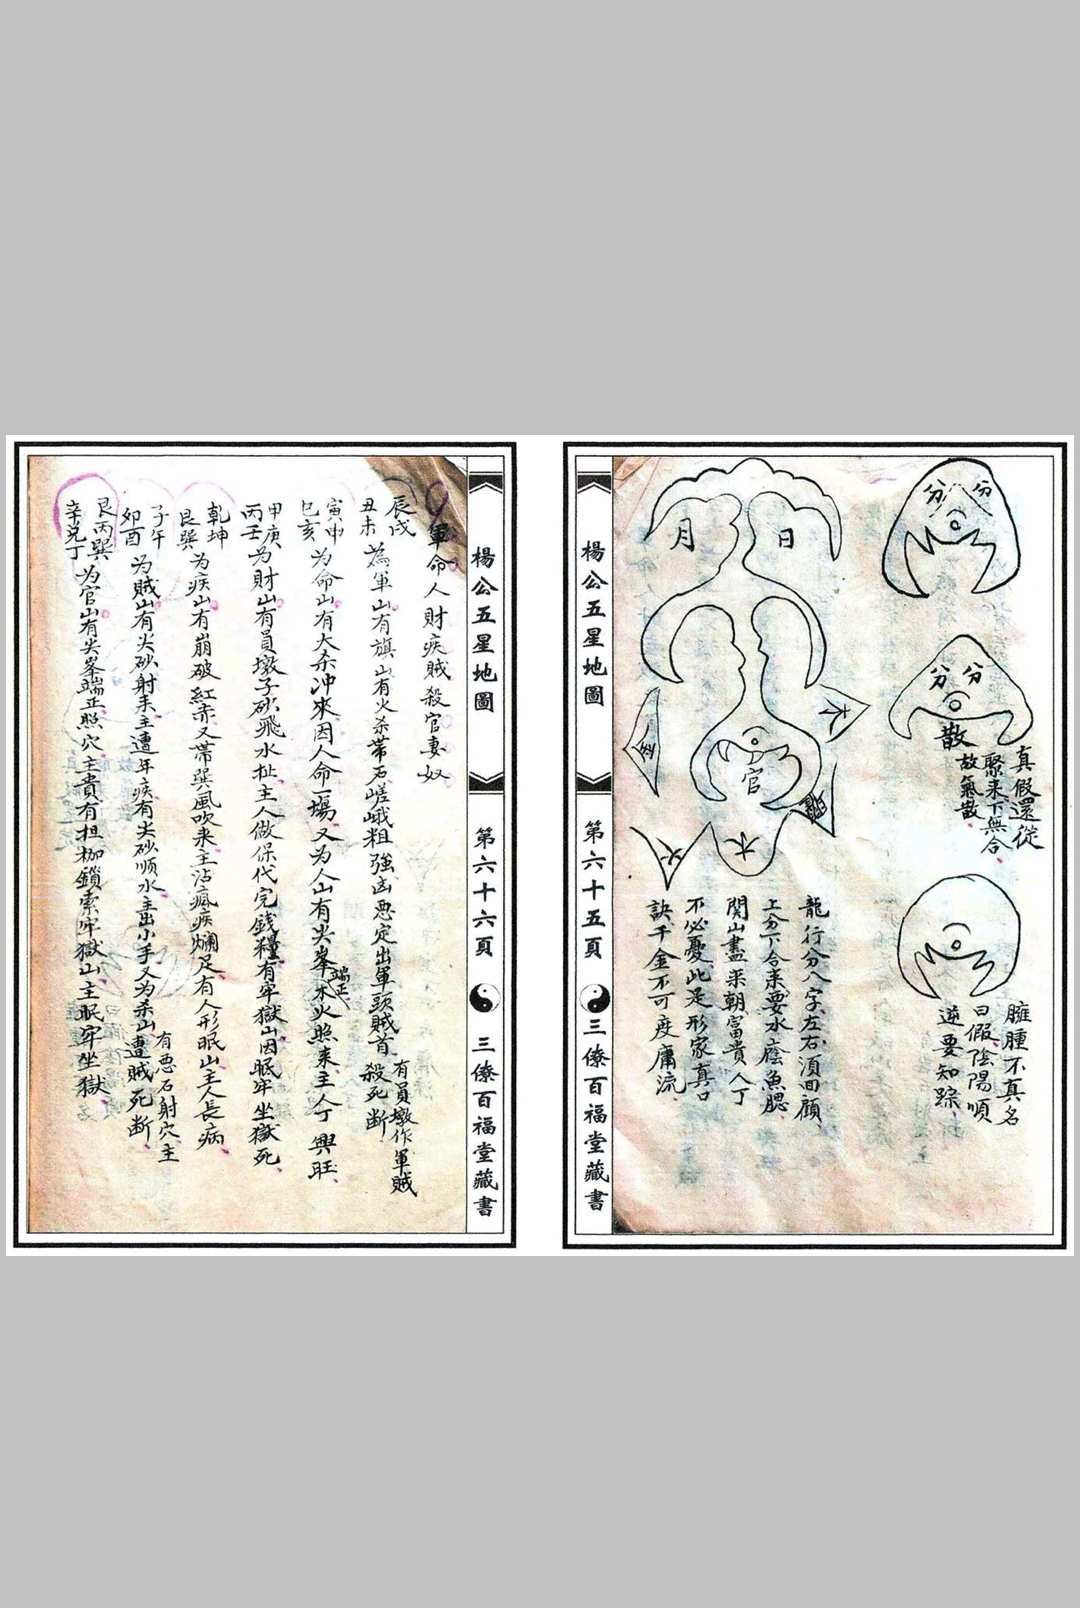 分 分
分 分
散
真假還從
聚来下無合
故氣散
臃腫不真名
曰假陰陽順
逆要知踪
日
月
官
木
金
水
火
龍行分八字左右須回顧
上分下合来要水蔭魚腮
関山盡来朝富貴人丁
不必憂此是形家真口
訣千金不可度庸流
楊公五星地圖
第六十五頁
三僚百福堂藏書
楊公五星地圖
第六十六頁
三僚百福堂藏書
軍命人財疾賊殺官妻奴
辰戌
丑未
為軍山有旗山有火杀帶石嵯峨粗強凶悪定出軍頭賊首
有員墩作軍賊
殺死断
寅申
巳亥
为命山有大杀冲來因人命一塲又为人山有尖峯端正木火照来主人丁興旺
甲庚
丙壬
为財山有員墩子砂飛水扯主人做保代完錢糧有牢獄山因眠牢坐獄死
乾坤
艮巽
为疾山有崩破紅赤又帶巽風吹来主沾瘋疾爛足有人形眠山主人長病
子午
卯酉
为賊山有尖砂射来主遭年疾有尖砂順水主出小手又为杀山
有悪石射穴主
遭賊死断
艮丙巽
辛兑丁
为官山有尖峯端正照穴主貴有担枷鎖索牢獄山主眠牢坐獄